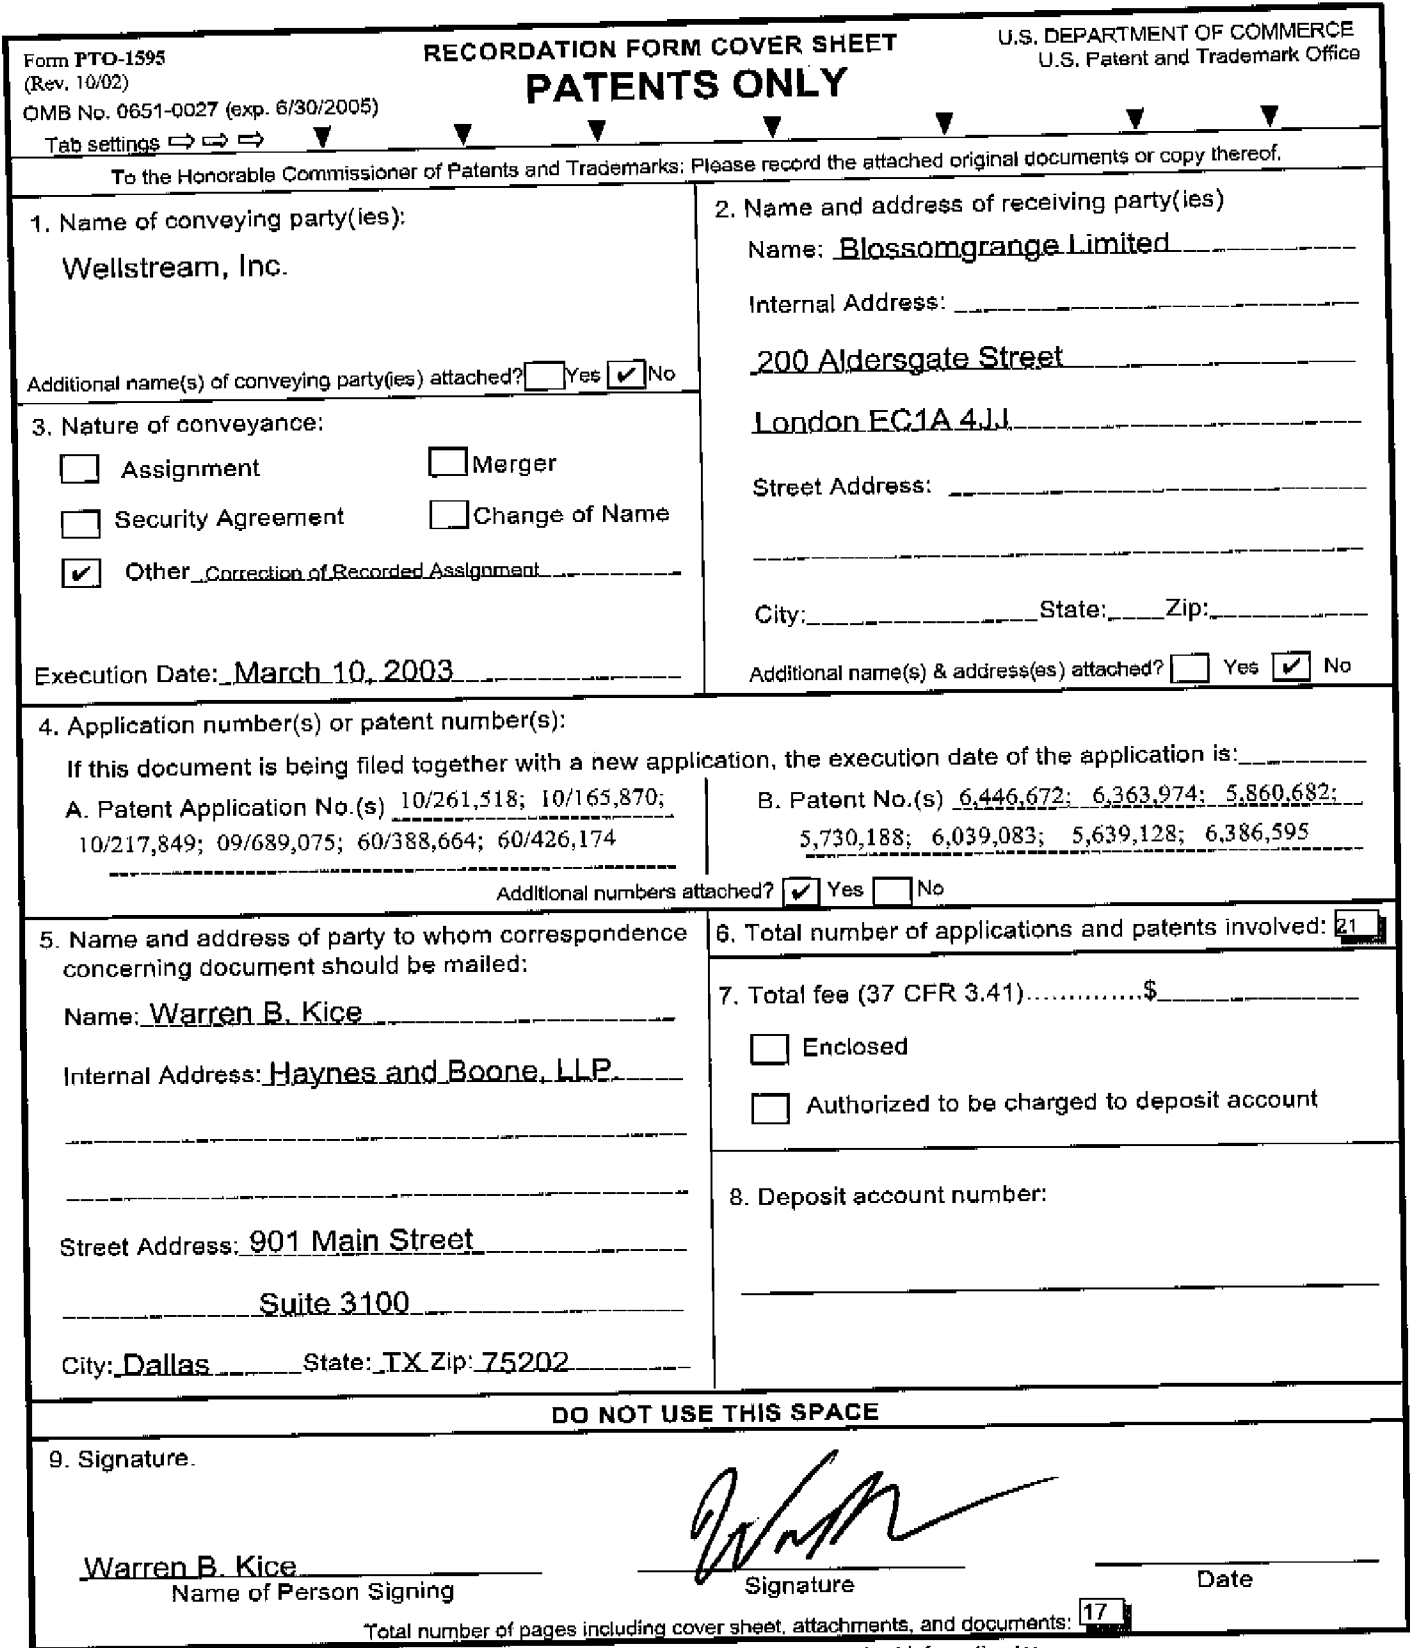 Form PTO-1595
(Rev. 10/02)
OMB No. 0651-0027 (exp. 6/30/2005)
Tab settings
RECORDATION FORM COVER SHEET
PATENTS ONLY
U.S. DEPARTMENT OF COMMERCE
U.S. Patent and Trademark Office
To the Honorable Commissioner of Patents and Trademarks: Please record the attached original documents or copy thereof.
1. Name of conveying party(ies):
Wellstream, Inc.
Additional name(s) of conveying party(ies) attached? Yes ✔ No
2. Name and address of receiving party(ies)
Name: Blossomgrange Limited
Internal Address:
200 Aldersgate Street
London EC1A 4JJ
Street Address:
City: State: Zip:
Additional name(s) & address(es) attached? Yes ✔ No
3. Nature of conveyance:
Assignment Merger
Security Agreement Change of Name
✔ Other Correction of Recorded Assignment
Execution Date: March 10, 2003
4. Application number(s) or patent number(s):
If this document is being filed together with a new application, the execution date of the application is:
A. Patent Application No.(s) 10/261,518; 10/165,870;
10/217,849; 09/689,075; 60/388,664; 60/426,174
B. Patent No.(s) 6,446,672; 6,363,974; 5,860,682;
5,730,188; 6,039,083; 5,639,128; 6,386,595
Additional numbers attached? ✔ Yes No
5. Name and address of party to whom correspondence
concerning document should be mailed:
Name: Warren B. Kice
Internal Address: Haynes and Boone, LLP.
Street Address: 901 Main Street
Suite 3100
City: Dallas State: TX Zip: 75202
6. Total number of applications and patents involved: 21
7. Total fee (37 CFR 3.41)..............$
Enclosed
Authorized to be charged to deposit account
8. Deposit account number:
DO NOT USE THIS SPACE
9. Signature.
Warren B. Kice
Name of Person Signing
Signature
Date
Total number of pages including cover sheet, attachments, and documents: 17